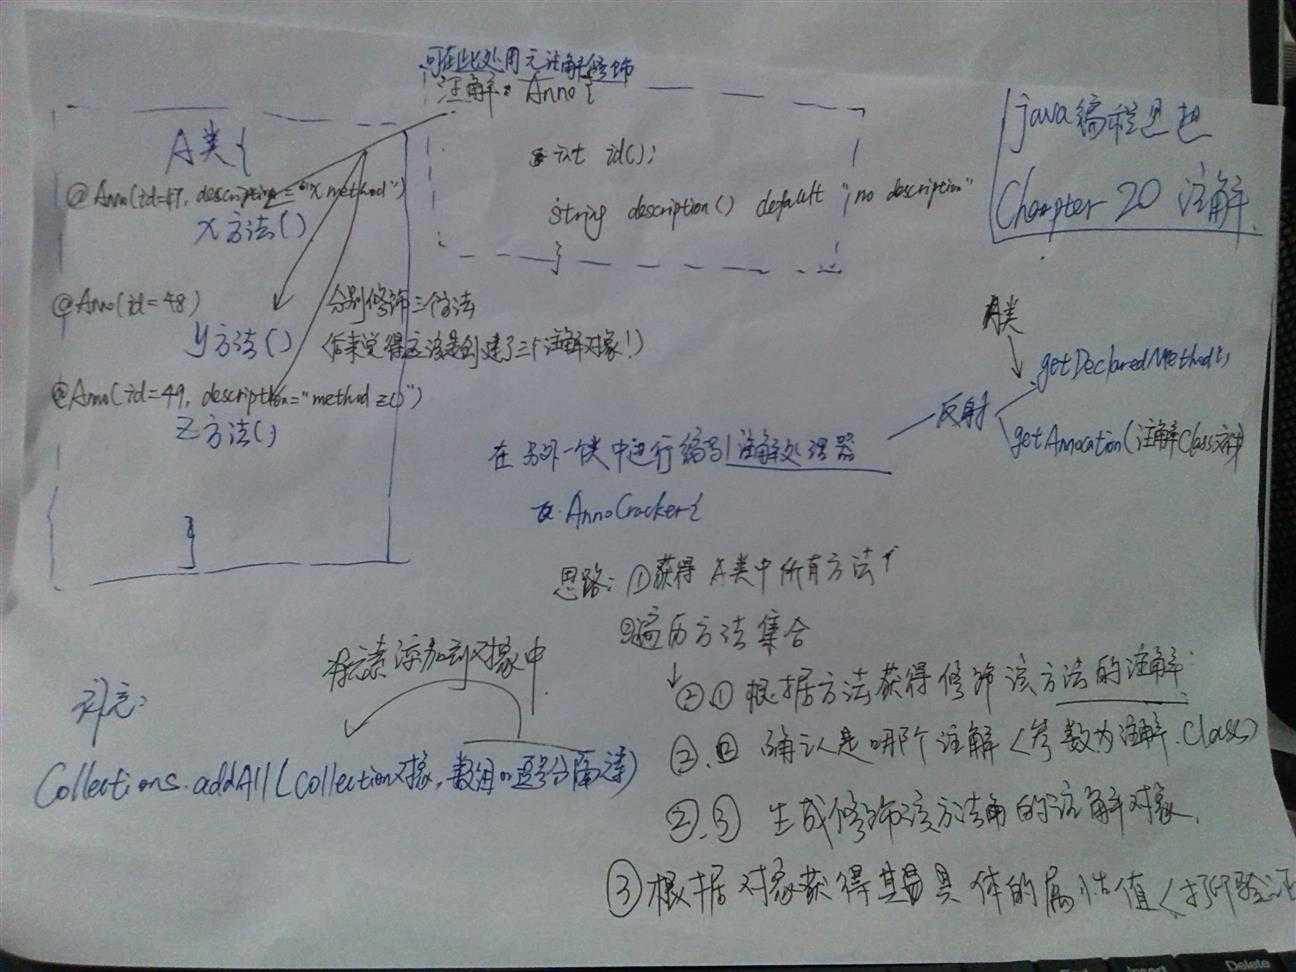 可在此处用元注解修饰
注解: Anno {
int id();
String description() default "no description"
}
java编程思想
Chapter 20 注解
A类{
@Anno(id=47, description="X method")
X方法()
@Anno(id=48)
y方法()
分别修饰三个方法
(后来觉得应该是创建了三个注解对象!)
@Anno(id=49, description="method z()")
Z方法()
}
A类
getDeclaredMethod();
反射
getAnnocation(注解Class文件)
在另外一类中进行编写注解处理器
AnnoCracker{
思路: ①获得A类中所有方法
②遍历方法集合
②.① 根据方法获得修饰该方法的注解
②.② 确认是哪个注解<参数为注解.Class>
②.③ 生成修饰该方法的注解对象.
③根据对象获得其具体的属性值<打印验证
补充:
将元素添加到对象中
Collections.addAll(collection对象, 数组or逗号分隔)